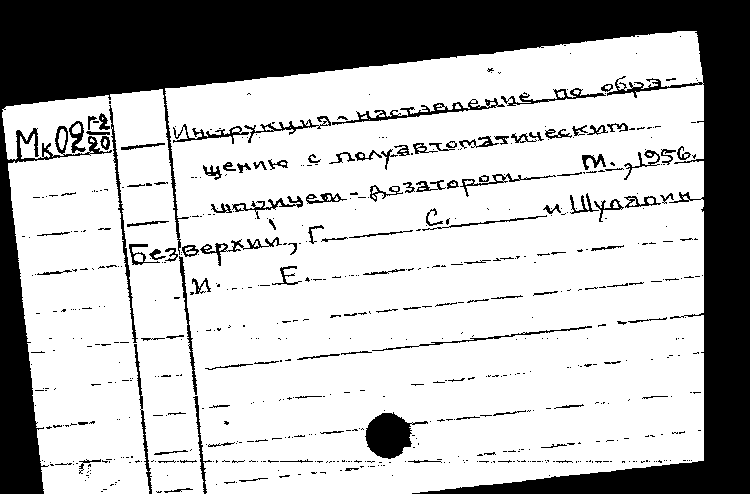 Мк 02 Г-2/20
Инструкция-наставление по обра-
щению с полуавтоматическим
шприцем-дозатором. М., 1956.
Безверхий, Г. С. и Шуляпин,
И. Е.